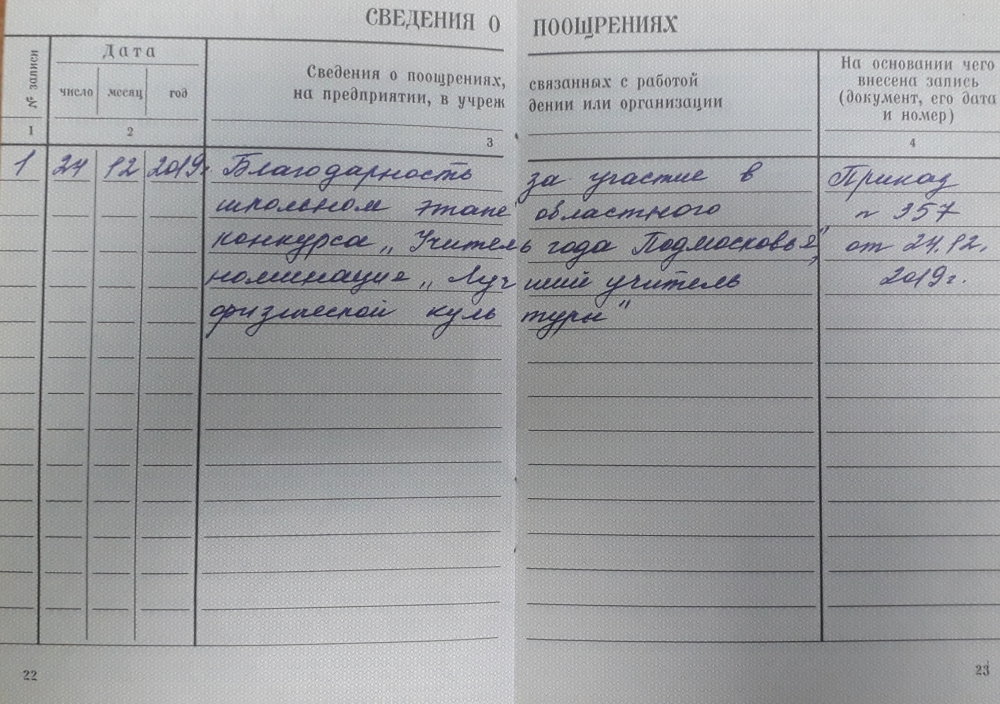 СВЕДЕНИЯ О ПООЩРЕНИЯХ
№ записи
Дата
число месяц год
Сведения о поощрениях, связанных с работой
на предприятии, в учреждении или организации
На основании чего
внесена запись
(документ, его дата
и номер)
1 2 3 4
1 24 12 2019г. Благодарность за участие в Приказ
школьном этапе областного № 957
конкурса „Учитель года Подмосковья", от 24.12.
номинация „Лучший учитель 2019г.
физической культуры"
22 23